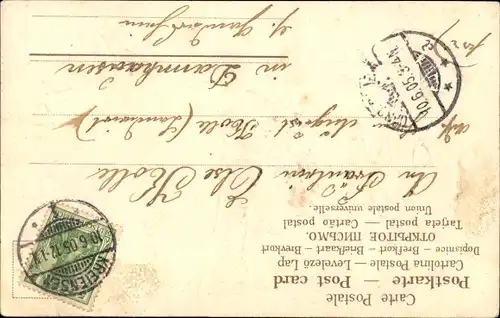 Carte Postale
Postkarte — Post card
Cartolina Postale — Levelező Lap
Dopisnice — Brefkort — Briefkaart — Brevkort
ОТКРЫТОЕ ПИСЬМО.
Tarjeta postal — Cartão postal
Union postale universelle.
An Fräulein Else Holle
August Holle (Landwirt)
in Dannhausen
KREIENSEN
10.6.05.
10.6.05. 3-4N.